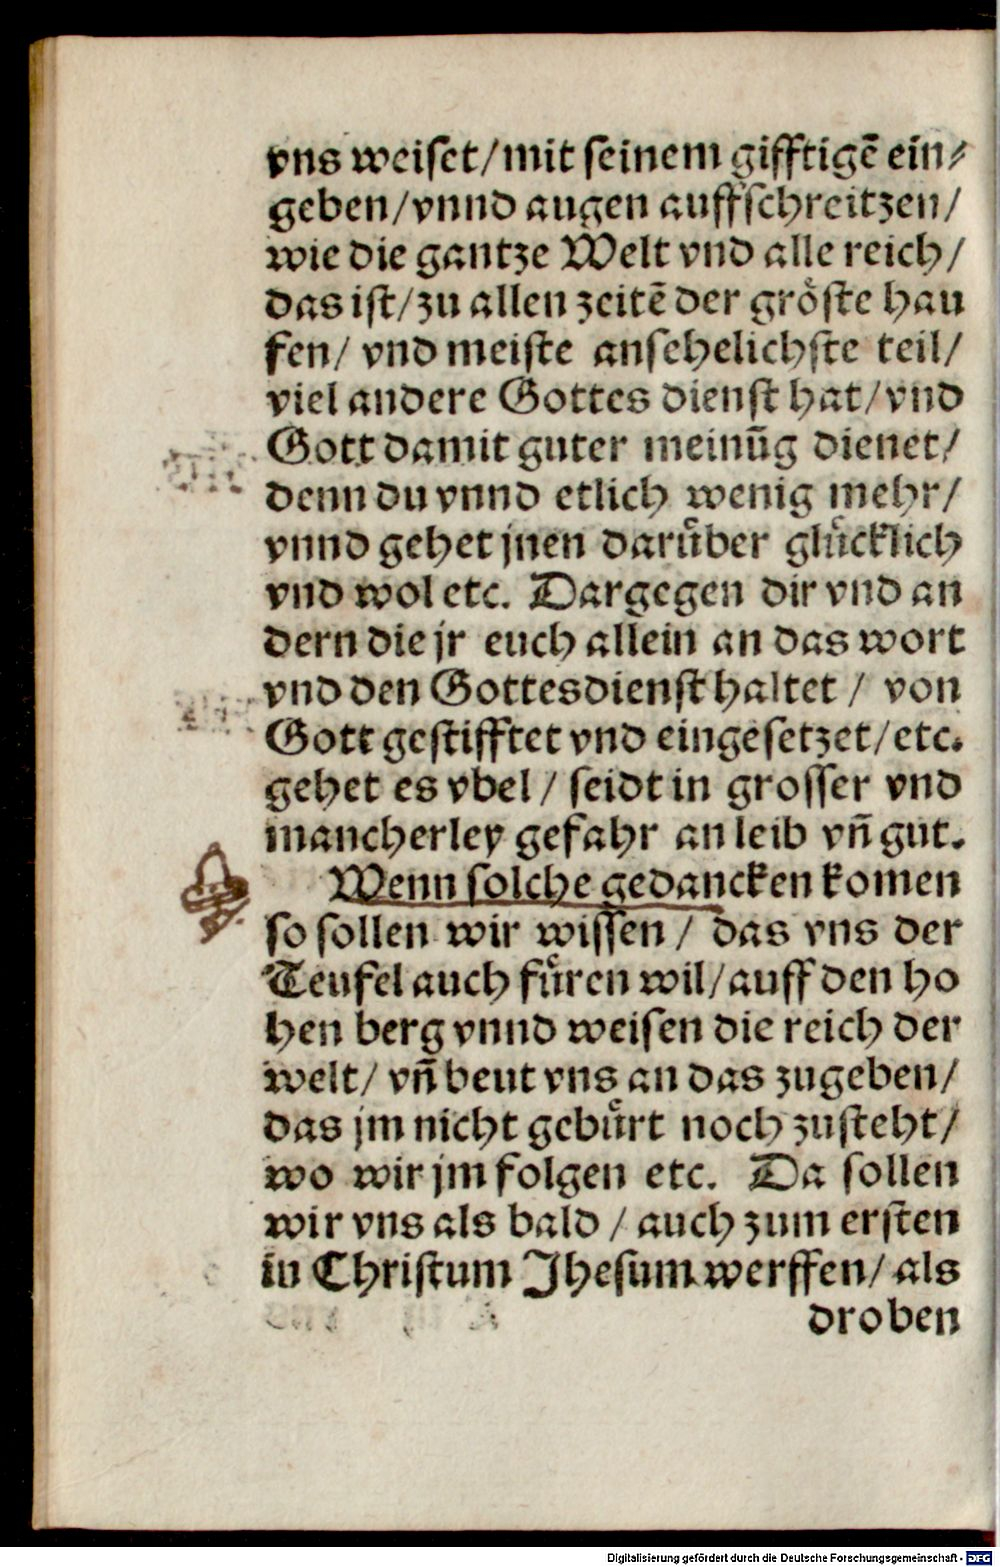 vns weiset/mit seinem gifftigē ein⸗
geben/vnnd augen auffschreitzen/
wie die gantze Welt vnd alle reich/
das ist/zu allen zeitē der grôste hau
fen/ vnd meiste ansehelichste teil/
viel andere Gottes dienst hat/vnd
Gott damit guter meinūg dienet/
denn du vnnd etlich wenig mehr/
vnnd gehet jnen darůber glůcklich
vnd wol etc. Dargegen dir vnd an
dern die jr euch allein an das wort
vnd den Gottesdienst haltet / von
Gott gestifftet vnd eingesetzet/etc.
gehet es vbel / seidt in grosser vnd
mancherley gefahr an leib vn̄ gut.
Wenn solche gedancken komen
so sollen wir wissen / das vns der
Teufel auch fůren wil/auff den ho
hen berg vnnd weisen die reich der
welt/ vn̄ beut vns an das zugeben/
das jm nicht gebůrt noch zusteht/
wo wir jm folgen etc. Da sollen
wir vns als bald / auch zum ersten
in Christum Jhesum werffen/ als
droben
Digitalisierung gefördert durch die Deutsche Forschungsgemeinschaft - DFG